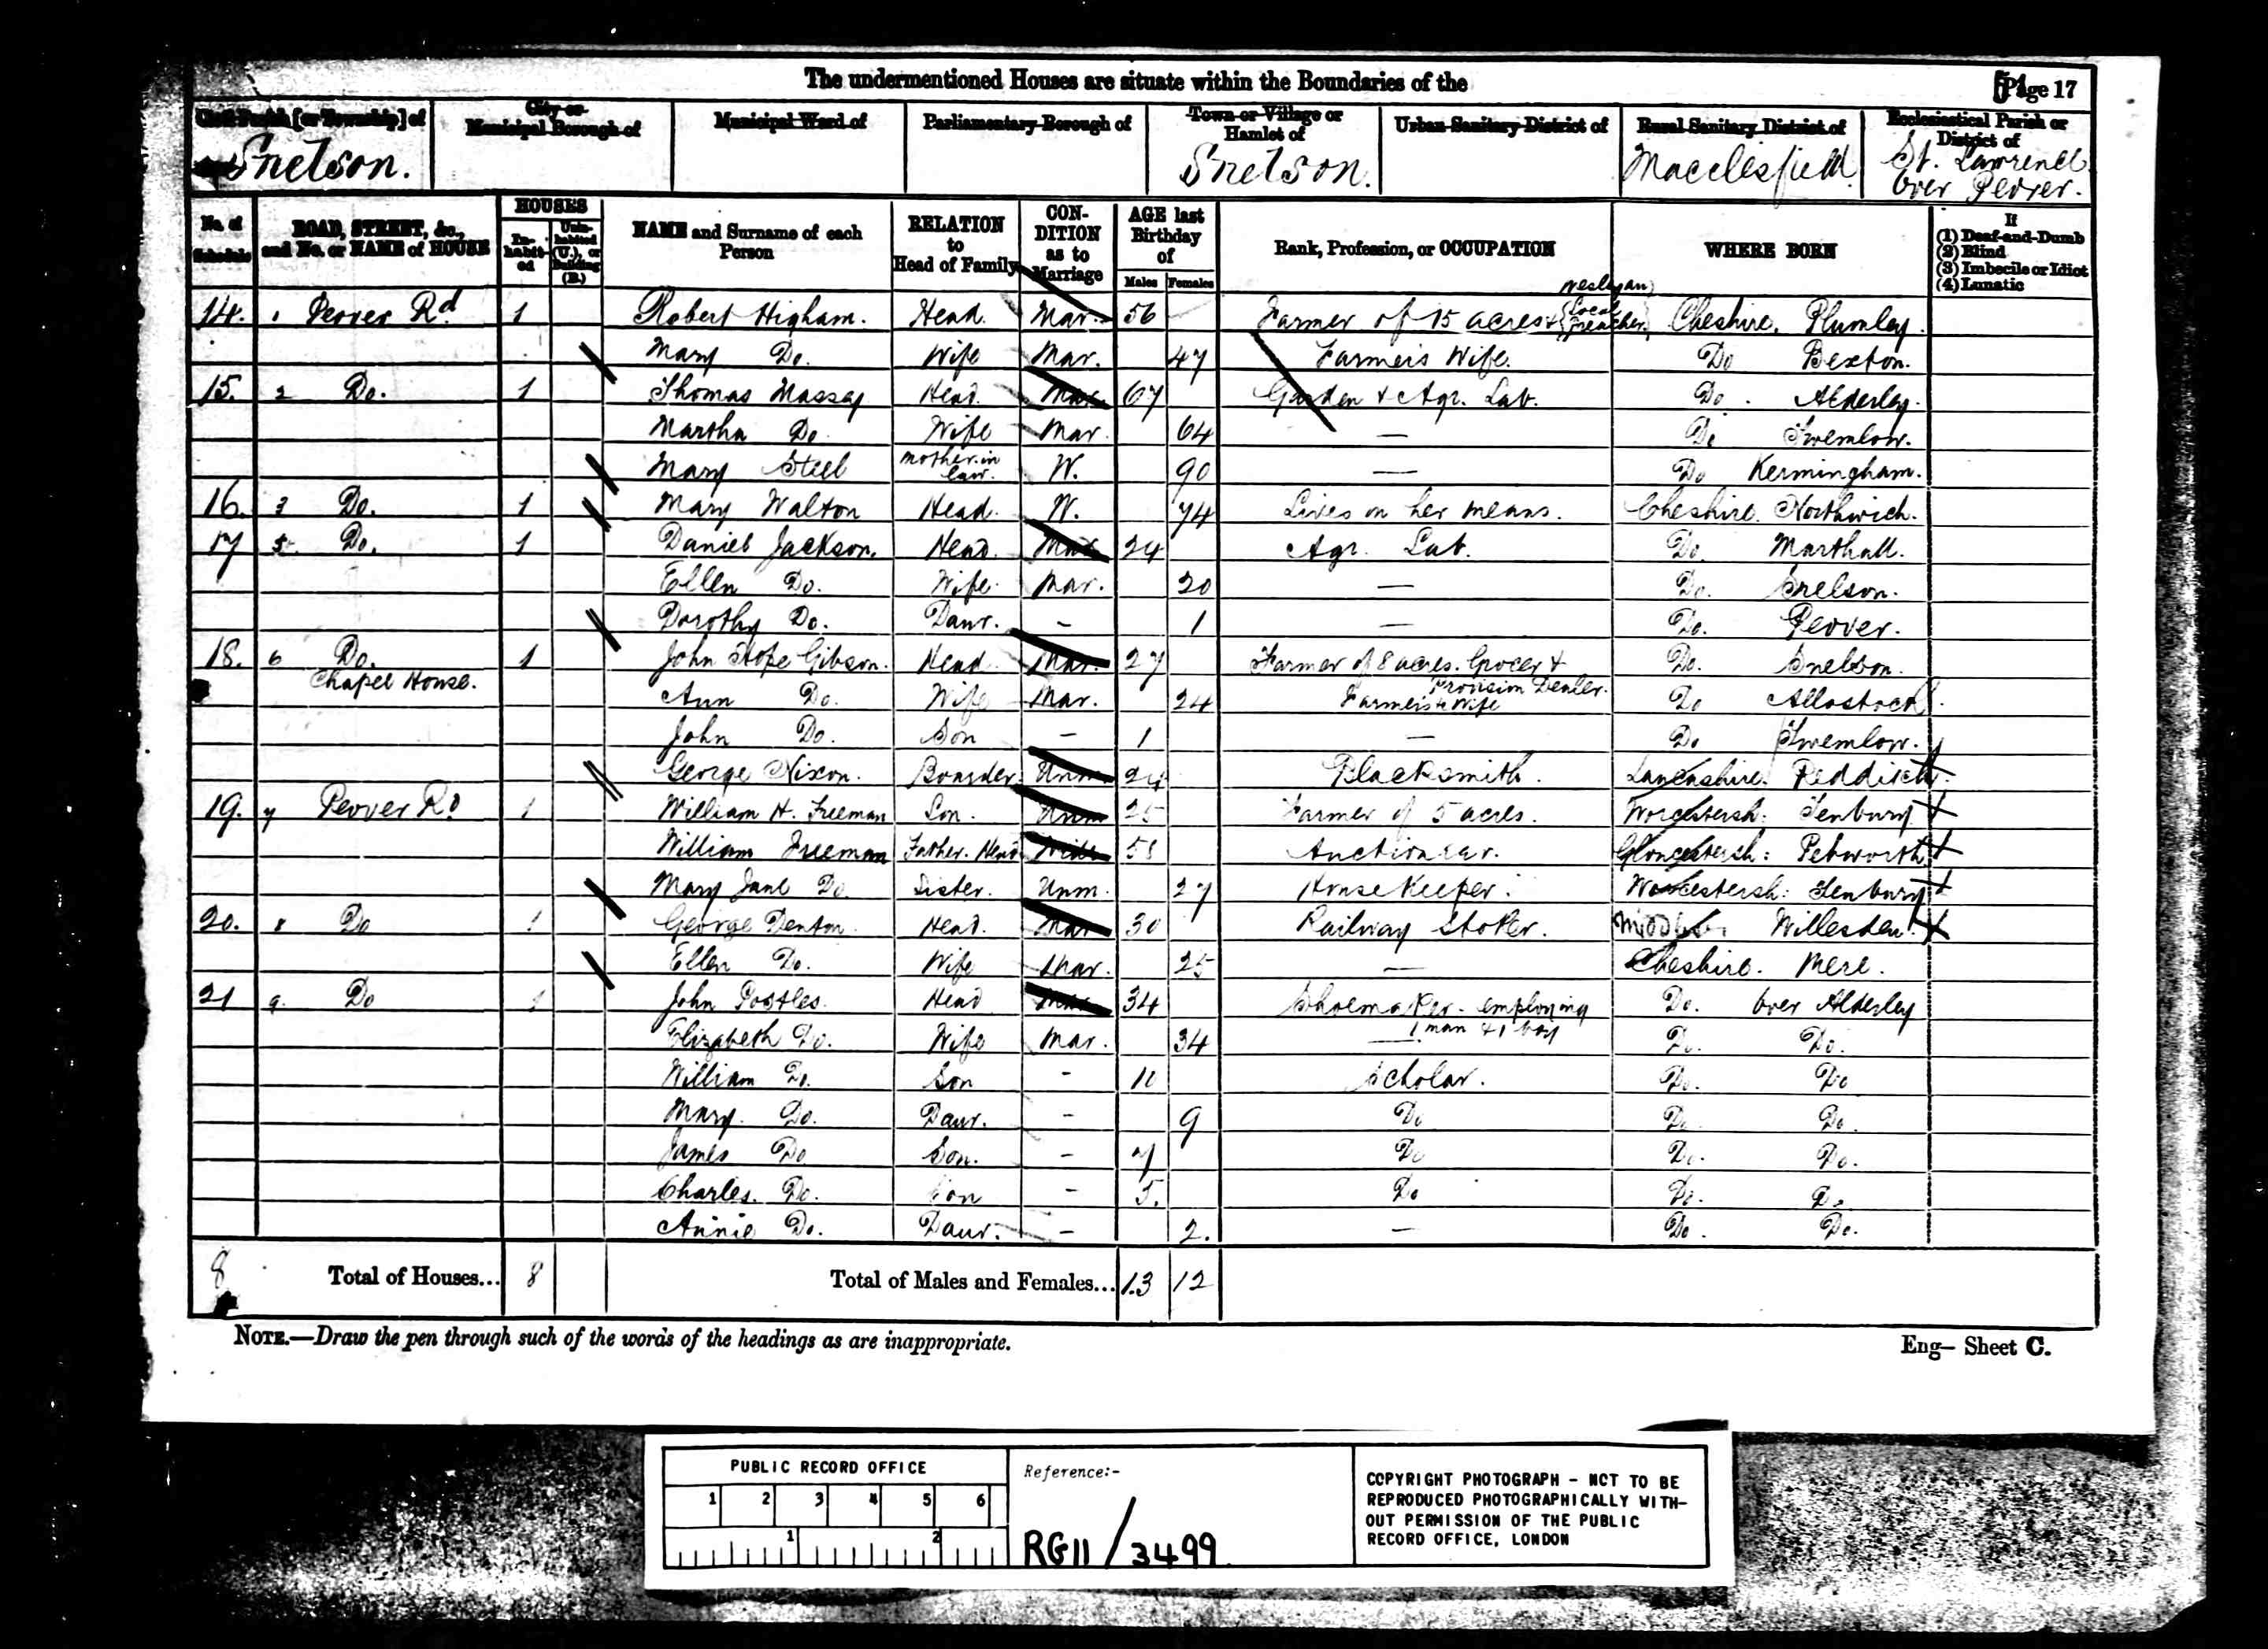 The undermentioned Houses are situate within the Boundaries of the
Page 17
Civil Parish [or Township] of
City or Municipal Borough of
Municipal Ward of
Parliamentary Borough of
Town or Village or Hamlet of
Urban Sanitary District of
Rural Sanitary District of
Ecclesiastical Parish or District of
Snelson.
Snelson.
Macclesfield
St. Lawrence Over Peover.
No. of Schedule
ROAD, STREET, &c., and No. or NAME of HOUSE
HOUSES
In-habit-ed
Unin-habited (U.), or Building (B.)
NAME and Surname of each Person
RELATION to Head of Family
CON-DITION as to Marriage
AGE last Birthday of
Males
Females
Rank, Profession, or OCCUPATION
WHERE BORN
If
(1) Deaf-and-Dumb
(2) Blind
(3) Imbecile or Idiot
(4) Lunatic
14. 1 Peover Rd 1 Robert Higham. Head. Mar. 56 Farmer of 15 acres & {Wesleyan Local Preacher} Cheshire. Plumley.
Mary Do. Wife Mar. 47 Farmer's Wife. Do Bexton.
15. 2 Do. 1 Thomas Massey Head. Mar. 67 Garden & Agr. Lab. Do. Alderley.
Martha Do. Wife Mar. 64 — Do Swemlow.
Mary Steel Mother-in-law. W. 90 — Do Kermingham.
16. 3 Do. 1 Mary Walton Head. W. 74 Lives on her means. Cheshire. Northwich.
17 5 Do. 1 Daniel Jackson. Head. Mar. 24 Agr. Lab. Do. Marthall.
Ellen Do. Wife. Mar. 20 — Do. Snelson.
Dorothy Do. Daur. - 1 — Do. Peover.
18. 6 Do. 1 John Hope Gibson. Head. Mar. 27 Farmer of 8 acres. Grocer & Provision Dealer. Do. Snelson.
Chapel House.
Ann Do. Wife Mar. 24 Farmer's Wife Do Allostock.
John Do. Son - 1 — Do Swemlow.
George Nixon. Boarder Unm. 24 Blacksmith. Lancashire. Reddish.
19. 7 Peover Rd 1 William H. Freeman Son. Unm 25 Farmer of 5 acres. Worcestersh: Tenbury
William Freeman Father. Head 58 Auctioneer. Gloucestersh: Pebworth
Mary Jane Do. Sister. Unm. 27 House Keeper. Worcestersh: Tenbury
20. 8 Do 1 George Denton. Head. Mar 30 Railway Stoker. Middlesex Willesden.
Ellen Do. Wife Mar. 25 — Cheshire. Mere.
21 9. Do 1 John Postles. Head Mar. 34 Shoemaker. employing 1 man & 1 boy Do. Over Alderley
Elizabeth Do. Wife Mar. 34 — Do. Do.
William Do. Son - 11 Scholar. Do. Do
Mary. Do. Daur. - 9 Do Do. Do.
James Do Son. - 7 Do Do. Do.
Charles. Do. Son - 5. Do Do. Do
Annie Do. Daur. - 2. — Do. Do.
8 Total of Houses... 8 Total of Males and Females... 13 12
NOTE.—Draw the pen through such of the words of the headings as are inappropriate.
Eng— Sheet C.
PUBLIC RECORD OFFICE
1 2 3 4 5 6
1 2
Reference:-
RG11/3499
COPYRIGHT PHOTOGRAPH - NOT TO BE
REPRODUCED PHOTOGRAPHICALLY WITH-
OUT PERMISSION OF THE PUBLIC
RECORD OFFICE, LONDON